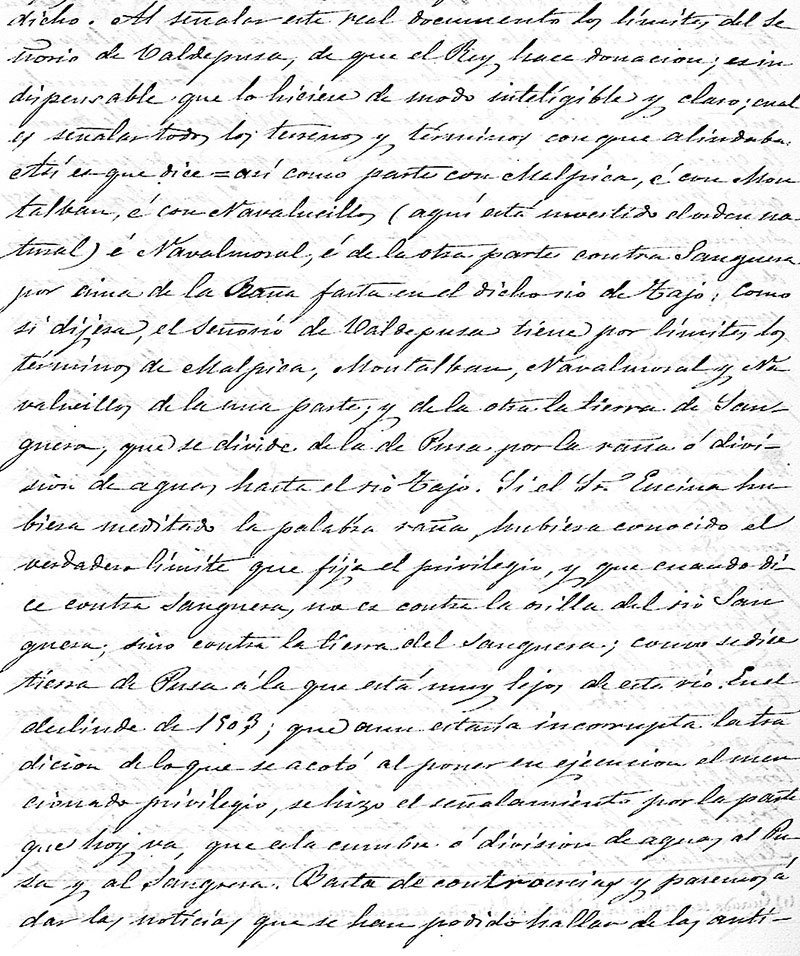 dicho. Al señalar este real documento los límites del se
ñorio de Valdepusa, de que el Rey hace donacion; es in
dispensable que lo hiciese de modo inteligible y claro; cual
es señalar todos los terrenos y términos con que alindaba.
Así es que dice = así como parte con Malpica, é con Mon
talban, é con Navalucillos (aquí está invertido el orden na-
tural) é Navalmoral, é de la otra parte contra Sanguera
por cima de la Raña fasta en el dicho rio de Tajo; como
si dijera, el Señorío de Valdepusa tiene por límites los
términos de Malpica, Montalban, Navalmoral y Na
valucillos de la una parte; y de la otra la tierra de San-
guera, que se divide de la de Pusa por la raña ó divi-
sion de aguas hasta el rio Tajo. Si el Sr. Encina hu
biera meditado la palabra raña, hubiera conocido el
verdadero límite que fija el privilegio, y que cuando di
ce contra Sanguera, no es contra la orilla del rio San
guera, sino contra la tierra del Sanguera; como se dice
tierra de Pusa á la que está muy lejos de este rio. En el
deslinde de 1503; que aun estaria incorrupta la tra
dicion de lo que se acotó al poner en ejecucion el men
cionado privilegio, se hizo el señalamiento por la parte
que hoy va, que es la cumbre ó division de aguas al Pu
sa y al Sanguera. Basta de controversias y pasemos á
dar las noticias que se han podido hallar de las anti-